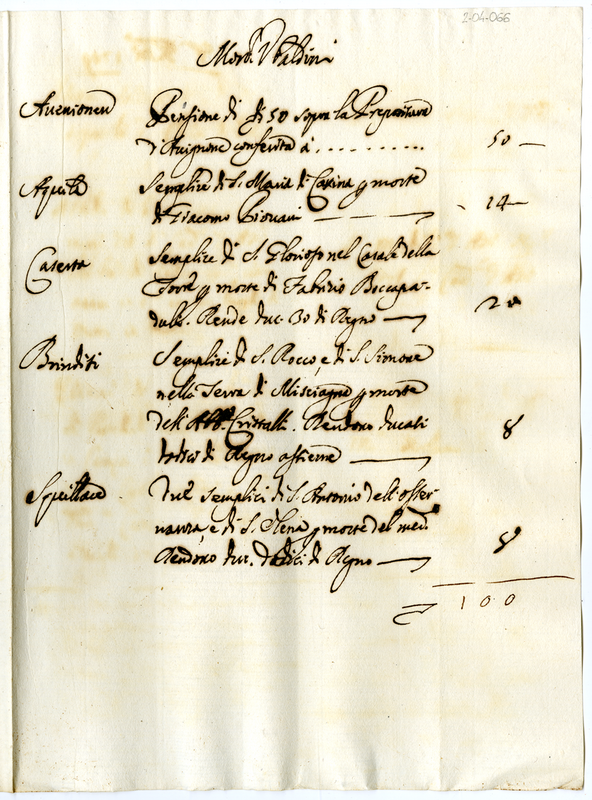 2-04-066
Mons.r Ubaldini
Avenionen
Pensione di 50 sopra la Prepositura
d'Avignone conferita à . . . . . . . . . . 50 —
Aquila
Semplice di S. Maria di Cascina p morte
di Giacomo Piovani — 14 —
Caserta
Semplice di S. Glorioso nel Casale della
Torre p morte di Fabritio Boccapa-
dule. Rende duc. 30 di Regno — 20
Brindisi
Semplici di S. Rocco, e di S. Simone
nella Terra di Misciagna p morte
dell'Abb. Cristalli. Rendono ducati
dodici di Regno assieme — 8
Squillace
Due semplici di S. Antonio dell'Osser-
vanza, e di S. Elena p morte del med.
Rendono duc. dodici di Regno — 8
100